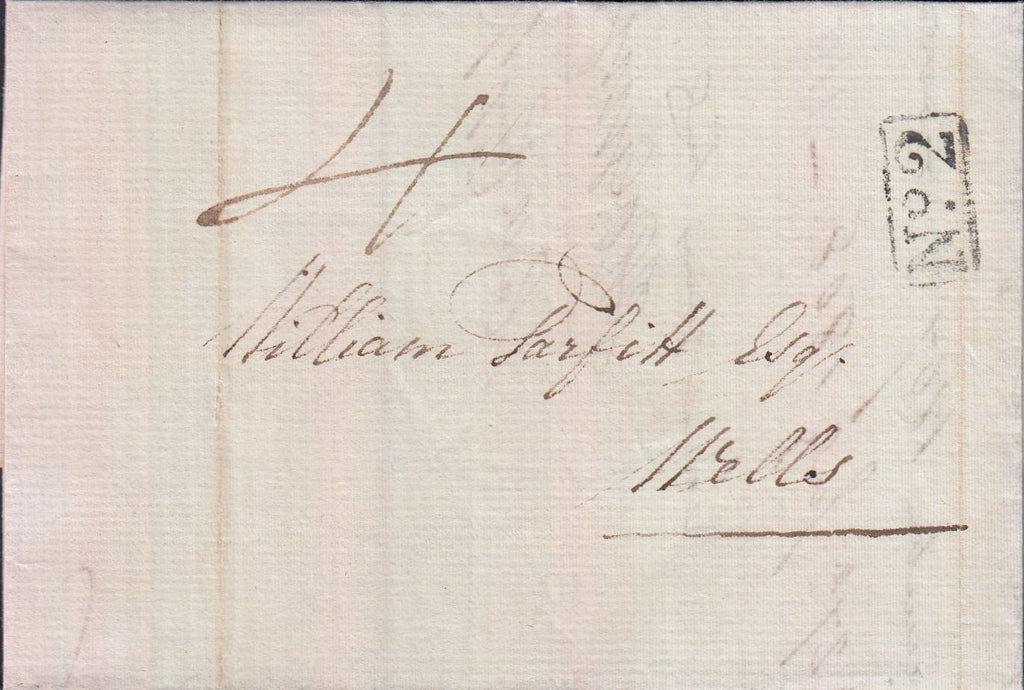 4
No. 2
William Parfitt Esqr.
Wells